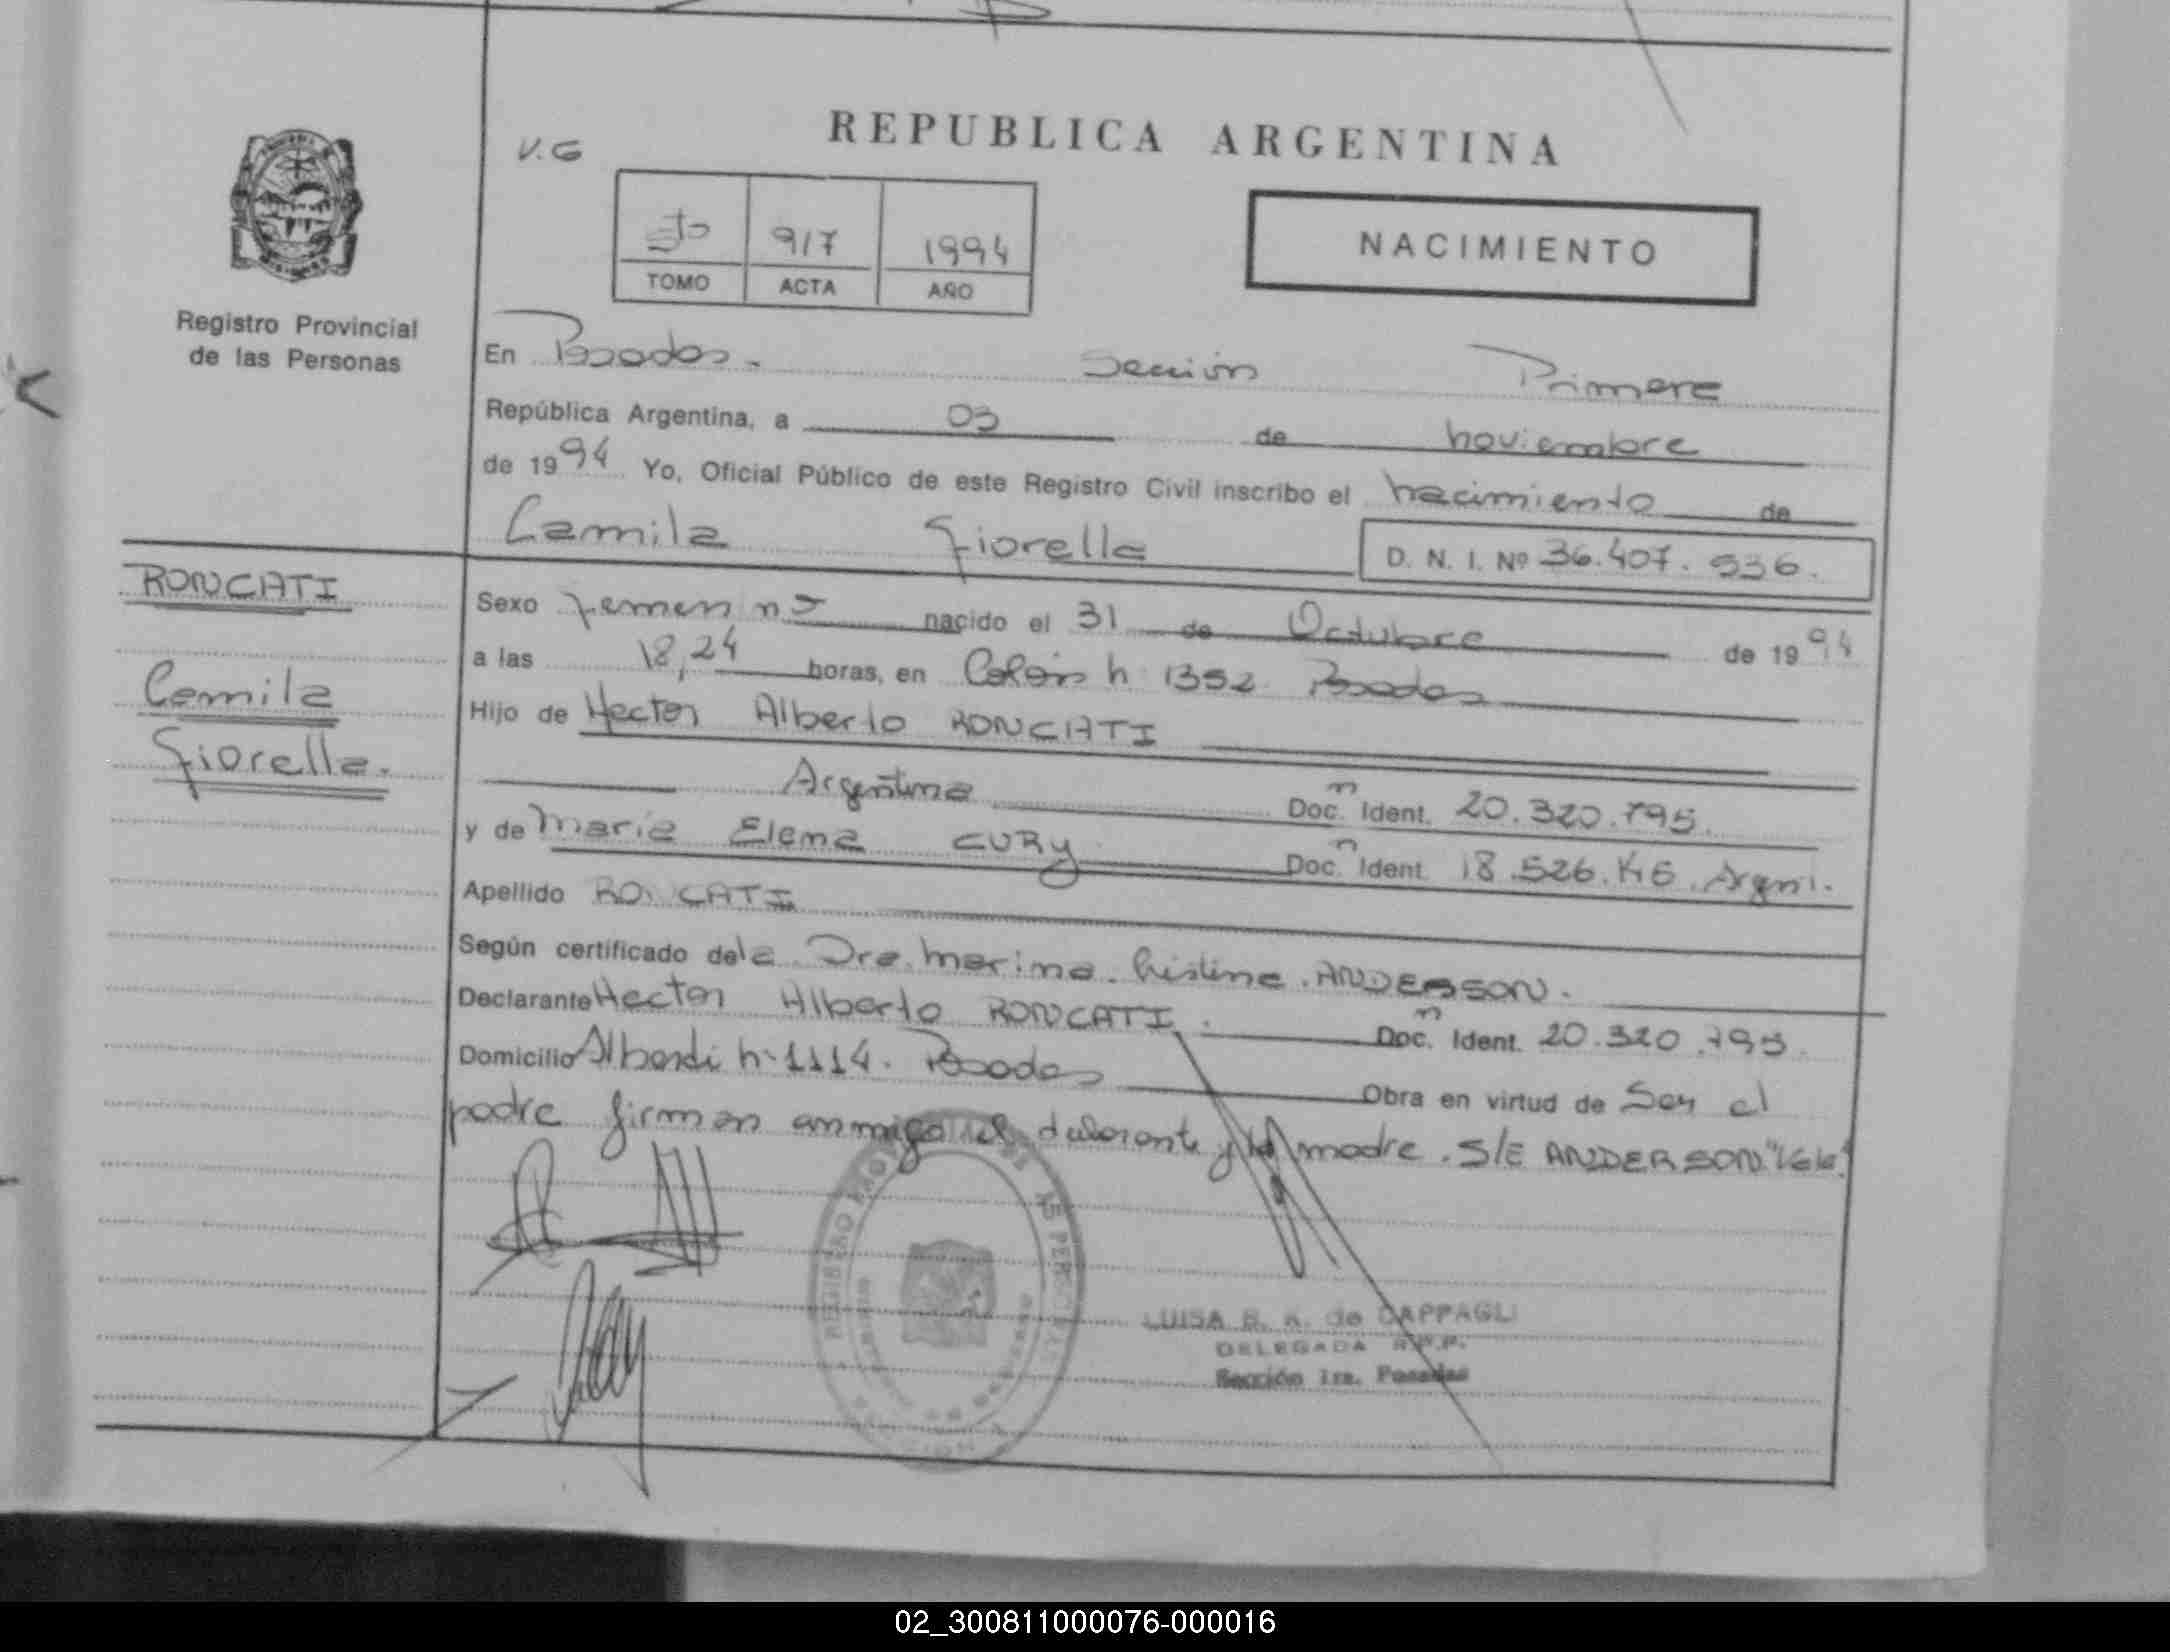 REPUBLICA ARGENTINA
V.G
5to 917 1994
TOMO ACTA AÑO
NACIMIENTO
Registro Provincial
de las Personas
En Posadas. Sección Primera
República Argentina, a 03 de noviembre
de 1994 Yo, Oficial Público de este Registro Civil inscribo el nacimiento de
Camila Fiorella D. N. I. Nº 36.407.936.
RONCATI
Camila
Fiorella.
Sexo femenino nacido el 31 de Octubre de 1994
a las 18,24 horas, en Colón n 1352 Posadas
Hijo de Hector Alberto RONCATI
Argentina Doc. Ident. 20.320.795.
y de Maria Elena CURY Doc. Ident. 18.526. Argni.
Apellido RONCATI
Según certificado de la Dra. Marina. ANDERSON.
Declarante Hector Alberto RONCATI. Doc. Ident. 20.320.795.
Domicilio Alberdi n 1114. Posadas Obra en virtud de Ser el
padre firman conmigo el declarante y la madre. S/E ANDERSON
REGISTRO PROVINCIAL DE LAS PERSONAS
LUISA B. de CAPPAGLI
DELEGADA R.P.P.
Sección 1ra. Posadas
02_300811000076-000016